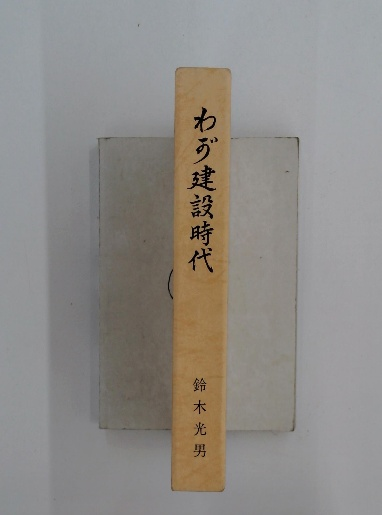 わが建設時代
鈴木光男